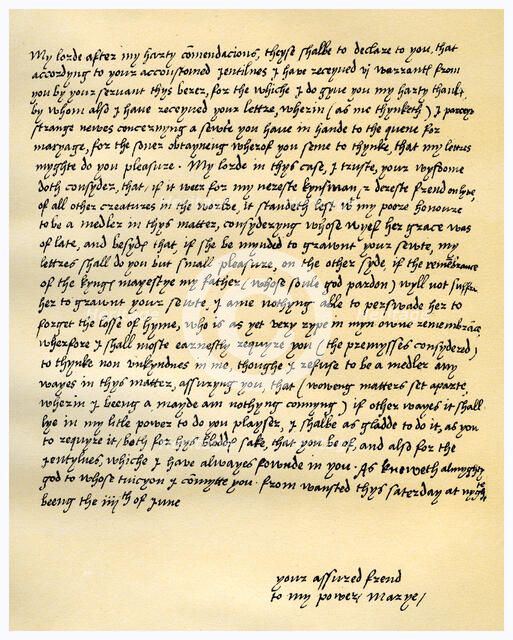 My lorde after my harty cõmendacions, theyse shalbe to declare to you, that
accordyng to your accoustomed jentilnes I have receyued vj warrantt from
you by your servant thys berer, for the whiche I do gyue you my harty thankt,
by whom also I have receyued your lettre, wherin (as me thynketh) I perceyve
strange newes concernyng a sewte you have in hande to the quene for
maryage, for the soner obtayneng wherof you seme to thynke, that my lettres
myghte do you pleasure. My lorde in thys case, I truste, your wysdome
doth consyder, that if it wer for my nereste kynsman, & dereste frend on lyve,
of all other creatures in the worlde, it standeth lest wt my poore honoure
to be a medler in thys matter, consyderyng whose wyef her grace was
of late, and besyds that if she be mynded to grawnt your sewte, my
lettres shall do you but small pleasure, on the other syde, if the remembrance
of the kyngs mayestye my father (whose soule god pardon) wyll not suffre
her to grawnt your sewte, I ame nothyng able to perswade her to
forget the losse of hyme, who is as yet very rype in myn owne remembrãce,
wherfore I shall moste earnestly requyre you (the premysses consydered)
to thynke non vnkyndnes in me, thoughe I refuse to be a medler any
wayes in thys matter, assuryng you, that (woweng matters set aparte,
wherin I beeng a mayde am nothyng connyng) if other wayes it shall
lye in my litle power to do you playser, I shalbe as gladde to do it, as you
to requyre it, both for hys blodds sake, that you be of, and also for the
jentylnes, whiche I have allwayes fownde in you. As knoweth almyghty
god to whose tuicyon I cõmytte you. from wansted thys saterday at nyghte
beeng the iiijth of June
your assured frend
to my power, Marye/